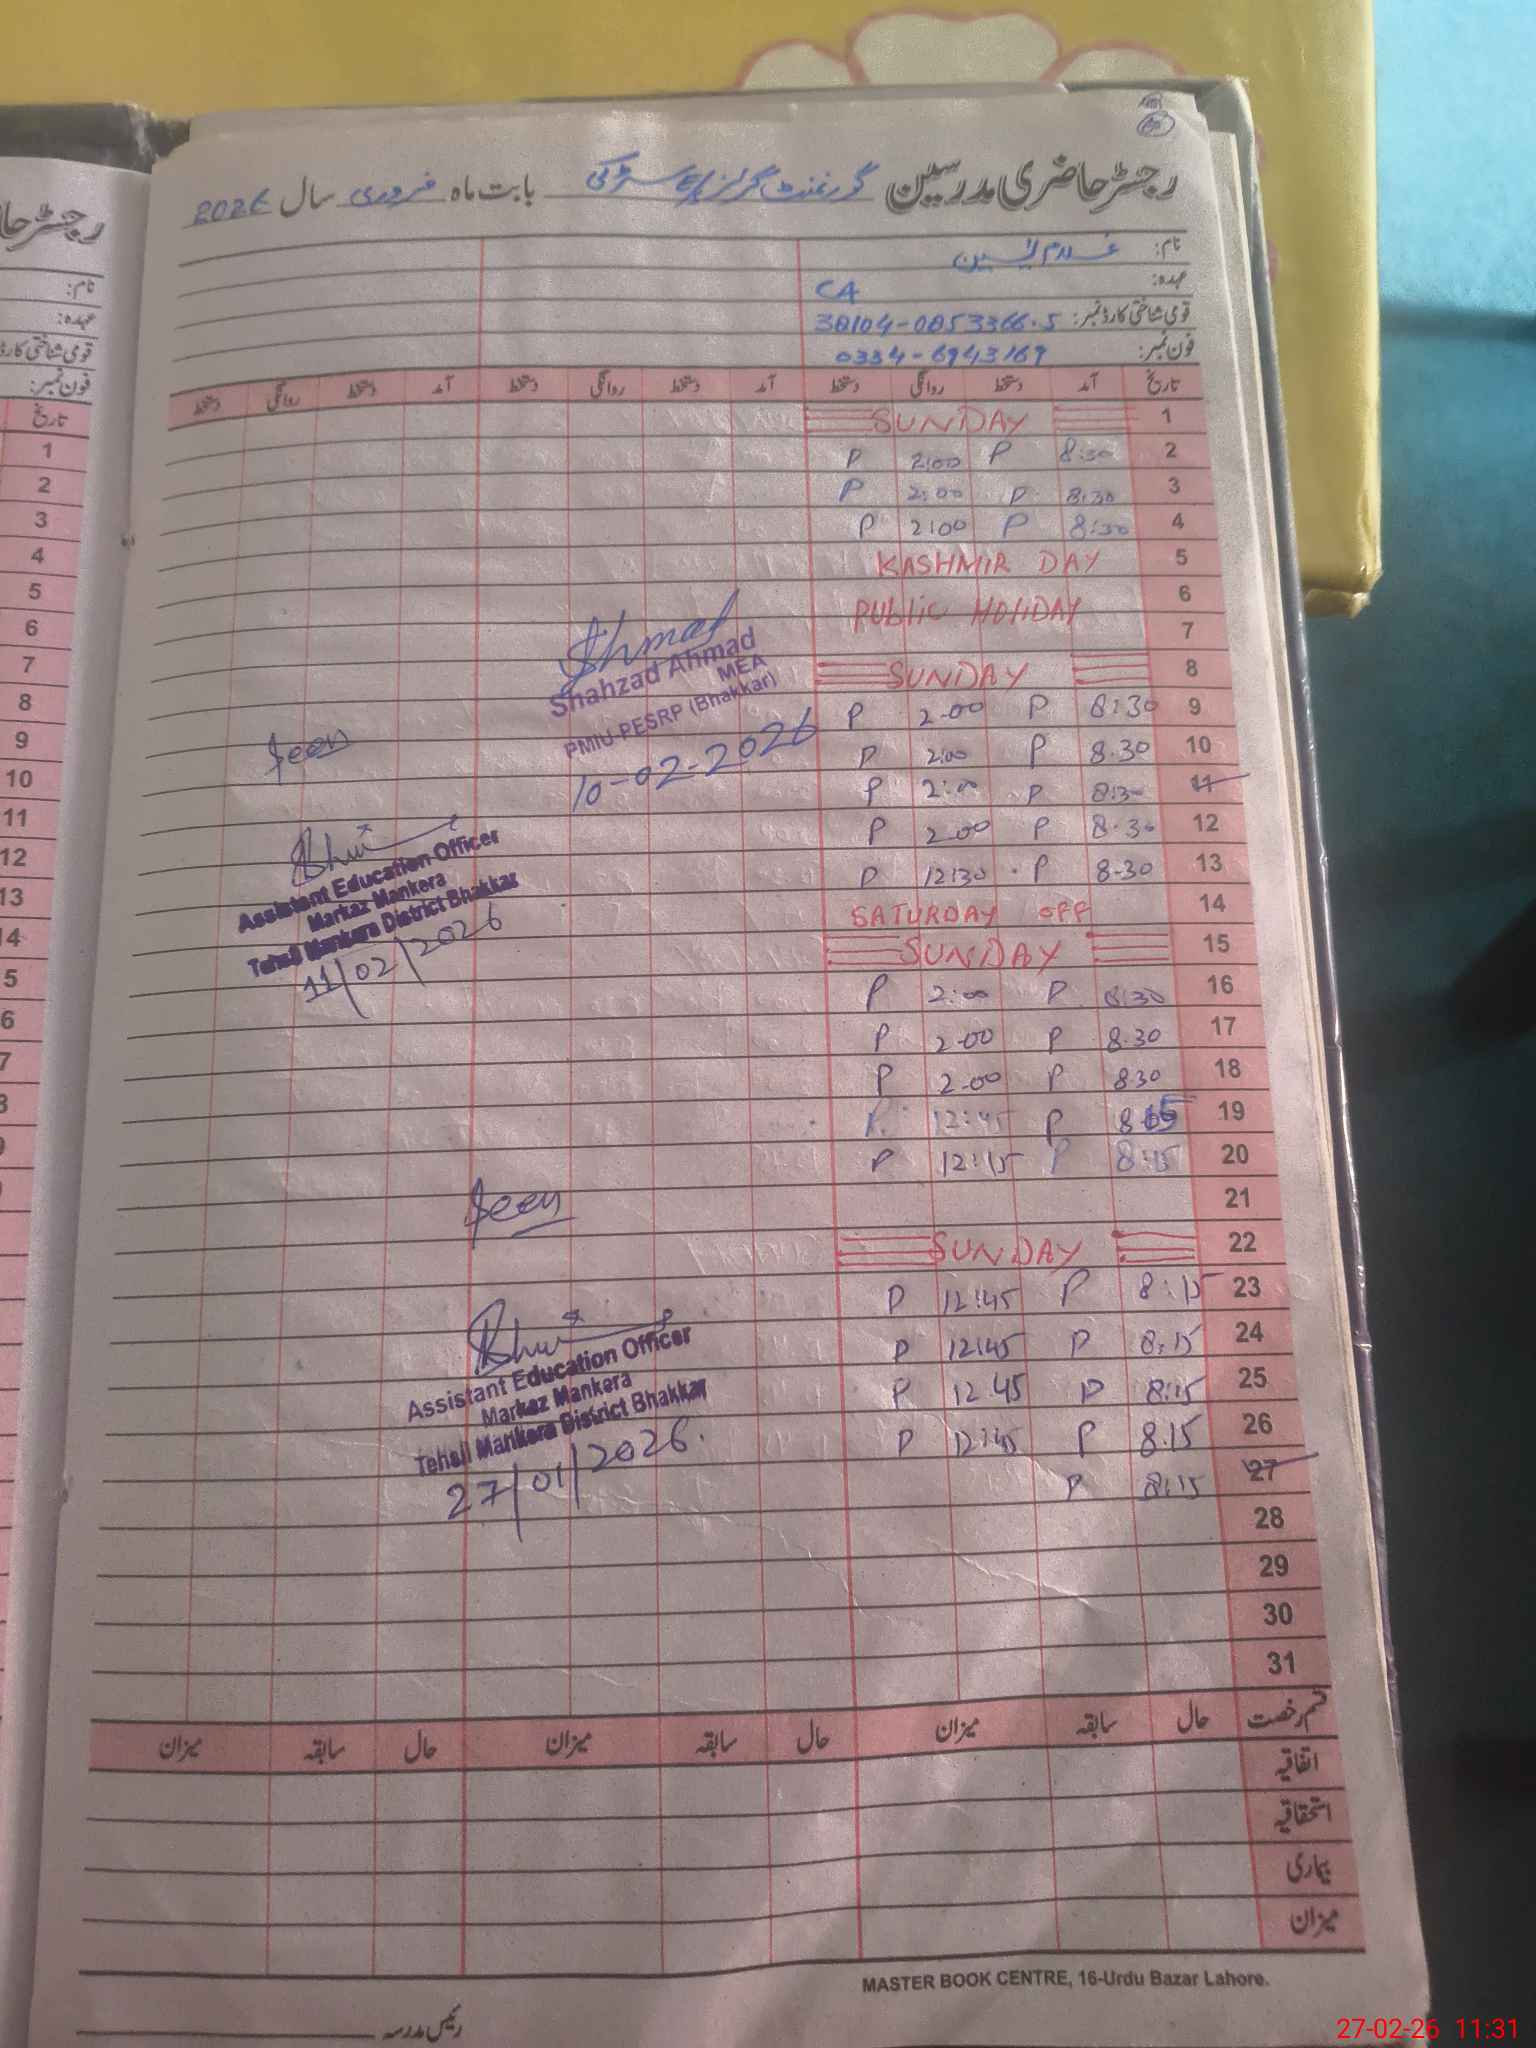 رجسٹر حاضری مدرسین گورنمنٹ گرلز بابت ماہ فروری سال 2026
نام: غلام یٰسین
عہدہ: CA
قومی شناختی کارڈ نمبر: 38104-0853366-5
فون نمبر: 0334-6943169
تاریخ آمد دستخط روانگی دستخط آمد دستخط روانگی دستخط آمد دستخط روانگی دستخط
1 SUNDAY
2 8:30 P 2:00 P
3 8:30 P 2:00 P
4 8:30 P 2:00 P
5 KASHMIR DAY
6 PUBLIC HOLIDAY
7
8 SUNDAY
9 8:30 P 2-00 P
10 8.30 P 2:00 P
11 8:30 P 2:00 P
12 8.30 P 2.00 P
13 8-30 P 12:30 P
14 SATURDAY OFF
15 SUNDAY
16 8:30 P 2:00 P
17 8.30 P 2-00 P
18 830 P 2-00 P
19 P 12:45 P
20 8:15 P 12:15 P
21
22 SUNDAY
23 8:15 P 12:45 P
24 8:15 P 12:45 P
25 8:15 P 12.45 P
26 8.15 P 12:45 P
27 8:15 P
28
29
30
31
Shahzad Ahmad
MEA
PMIU-PESRP (Bhakkar)
10-02-2026
Seen
Assistant Education Officer
Markaz Mankera
Tehsil Mankera District Bhakkar
11/02/2026
Seen
Assistant Education Officer
Markaz Mankera
Tehsil Mankera District Bhakkar
27/01/2026.
قسم رخصت حال سابقہ میزان حال سابقہ میزان حال سابقہ میزان
اتفاقیہ
استحقاقیہ
بیماری
میزان
MASTER BOOK CENTRE, 16-Urdu Bazar Lahore.
رئیس مدرسہ
رجسٹر حا
نام:
عہدہ:
قومی شناختی کارڈ
فون نمبر:
تاریخ
1
2
3
4
5
6
7
8
9
10
11
12
13
14
27-02-26 11:31